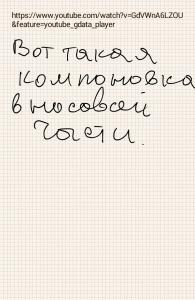 https://www.youtube.com/watch?v=GdVWnA6LZOU
&feature=youtube_gdata_player
Вот такая
компоновка
в носовой
части.